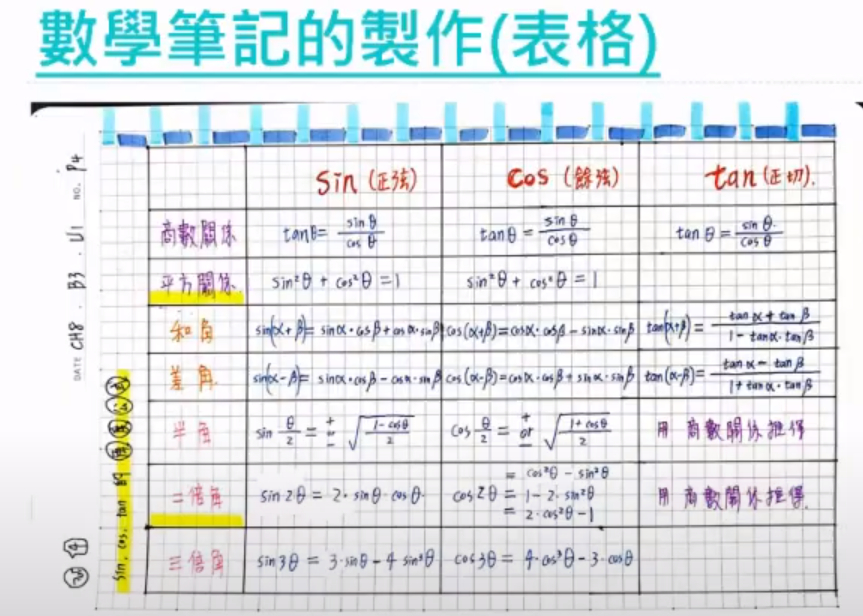 數學筆記的製作(表格)
DATE CH8 . B3 . U1 no. P4
sin, cos, tan 的
sin (正弦) cos (餘弦) tan (正切).
商數關係 tanθ= sinθ/cosθ tanθ = sinθ/cosθ tanθ = sinθ/cosθ
平方關係 sin²θ + cos²θ =1 sin²θ + cos²θ = 1
和角 sin(α+β)= sinα·cosβ+cosα·sinβ cos(α+β)=cosα·cosβ-sinα·sinβ tan(α+β)= tanα+tanβ/1-tanα·tanβ
差角 sin(α-β)= sinα·cosβ-cosα·sinβ cos(α-β)=cosα·cosβ+sinα·sinβ tan(α-β)= tanα-tanβ/1+tanα·tanβ
半角 sin θ/2 = + or - √(1-cosθ/2) cos θ/2 = + or - √(1+cosθ/2) 用 商數關係推得
二倍角 sin2θ = 2·sinθ·cosθ. cos2θ = cos²θ - sin²θ = 1-2·sin²θ = 2·cos²θ-1 用 商數關係推得.
三倍角 sin3θ = 3·sinθ-4 sin³θ cos3θ = 4·cos³θ-3·cosθ